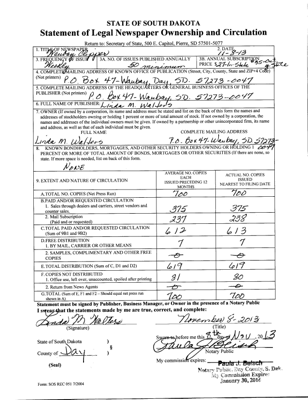 STATE OF SOUTH DAKOTA
Statement of Legal Newspaper Ownership and Circulation
Return to: Secretary of State, 500 E. Capitol, Pierre, SD 57501-5077
1. TITLE OF NEWSPAPER
2. DATE
11-8-13
3. FREQUENCY OF ISSUE
3A. NO. OF ISSUES PUBLISHED ANNUALLY
3B. ANNUAL SUBSCRIPTION PRICE
Weekly
50 minimum
4. COMPLETE MAILING ADDRESS OF KNOWN OFFICE OF PUBLICATION (Street, City, County, State and ZIP+4 Code)
(Not printers) P.O. Box 47-Waubay, Day, SD. 57273-0047
5. COMPLETE MAILING ADDRESS OF THE HEADQUARTERS OR GENERAL BUSINESS OFFICES OF THE
PUBLISHER (Not printer) P.O. Box 47-Waubay, SD. 57273-0047
6. FULL NAME OF PUBLISHER Linda M. Walters
7. OWNER (If owned by a corporation, its name and address must be stated and
addresses of stockholders owning or holding 1 percent or more of total amount of stock. If not owned by a corporation, the
names and addresses of the individual owners must be given. If owned by a partnership or other unincorporated firm, its name
and address, as well as that of each individual must be given.
FULL NAME
COMPLETE MAILING ADDRESS
Linda M. Walters
P.O. Box 47, Waubay, SD 57273-0047
8. KNOWN BONDHOLDERS, MORTGAGES, AND OTHER SECURITY HOLDERS OWNING OR HOLDING 1
PERCENT OR MORE OF TOTAL AMOUNT OF BONDS, MORTGAGES OR OTHER SECURITIES (If there are none, so
state. If more space is needed, list on back of this form.
NONE
9. EXTENT AND NATURE OF CIRCULATION
AVERAGE NO. COPIES EACH ISSUED PRECEDING 12 MONTHS
ACTUAL NO. COPIES ISSUED NEAREST TO FILING DATE
A. TOTAL NO. COPIES (Net Press Run)
700
700
B. PAID AND/OR REQUESTED CIRCULATION
1. Sales through dealers and carriers, street vendors and counter sales
375
375
2. Mail Subscription
(Paid and/or requested)
237
238
C. TOTAL PAID AND/OR REQUESTED CIRCULATION
(Sum of 9B1 and 9B2)
612
613
D. FREE DISTRIBUTION
1. BY MAIL, CARRIER OR OTHER MEANS
7
7
2. SAMPLES, COMPLIMENTARY AND OTHER FREE COPIES
0
0
E. TOTAL DISTRIBUTION (Sum of C, D1 and D2)
619
619
F. COPIES NOT DISTRIBUTED
1. Office use, left over, unaccounted, spoiled after printing
81
80
2. Return from News Agents
0
0
G. TOTAL (Sum of E, F1 and F2 – Should equal net press run shown in A)
700
700
Statement must be signed by Publisher, Business Manager, or Owner in the presence of a Notary Public
I swear that the statements made by me are true, correct, and complete:
Linda M Walters
November 8-2013
(Signature)
(Title)
State of South Dakota )
County of Day )
(Seal)
Notary Public
My commission expires:
Notary Public, Day County, S. Dak.
My Commission Expires:
January 30,
Form: SOS REC 051 7/2004